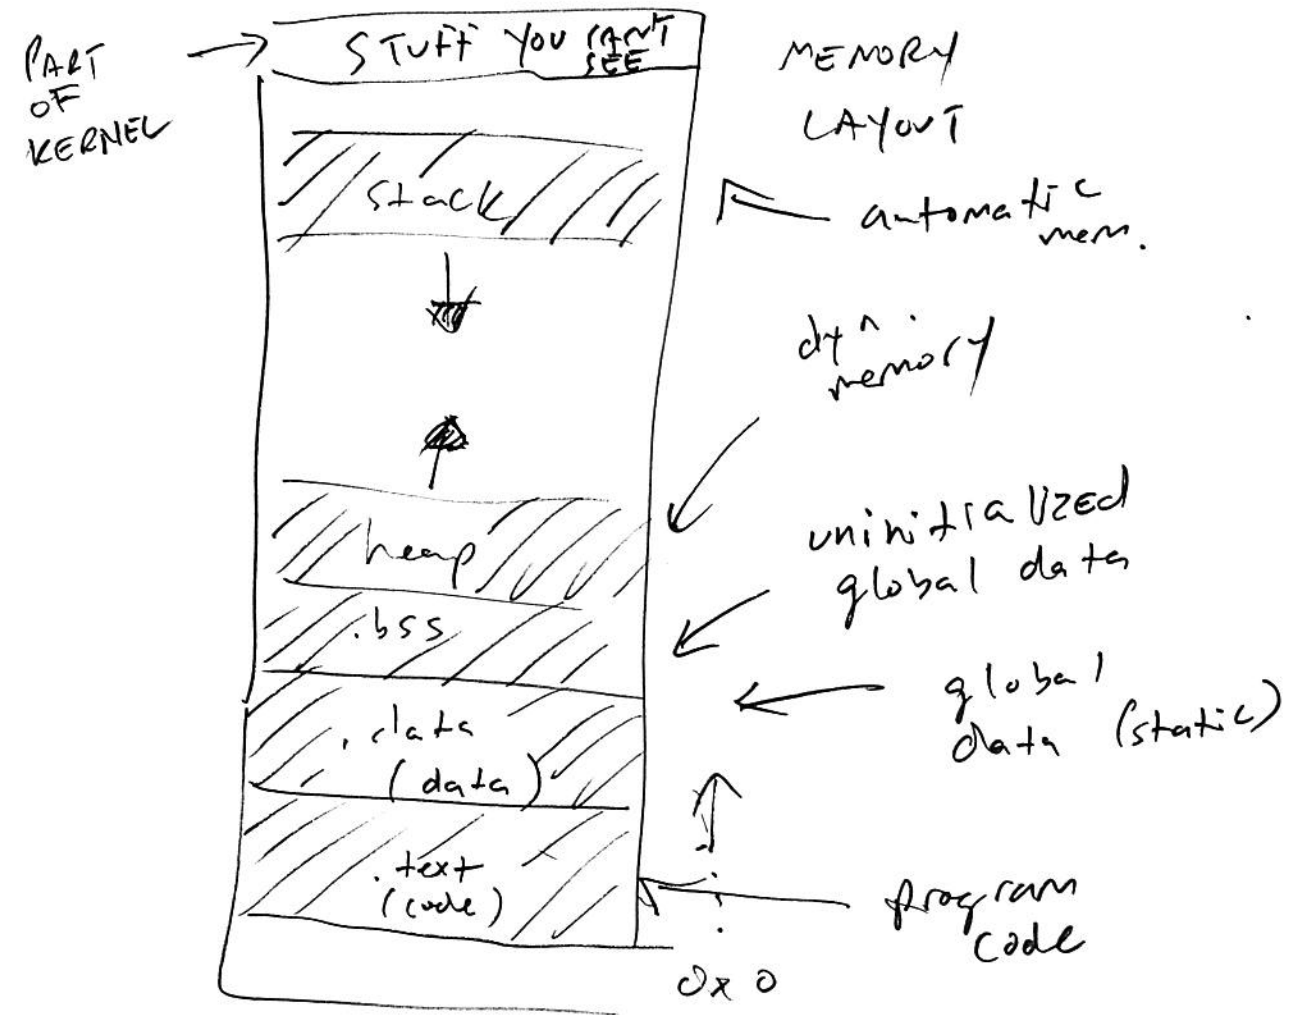 PART
OF
KERNEL
STUFF YOU CAN'T
SEE
MEMORY
LAYOUT
stack
automatic
mem.
dyn.
memory
heap
uninitialized
global data
.bss
global
data (static)
.data
(data)
.text
(code)
program
code
0x0